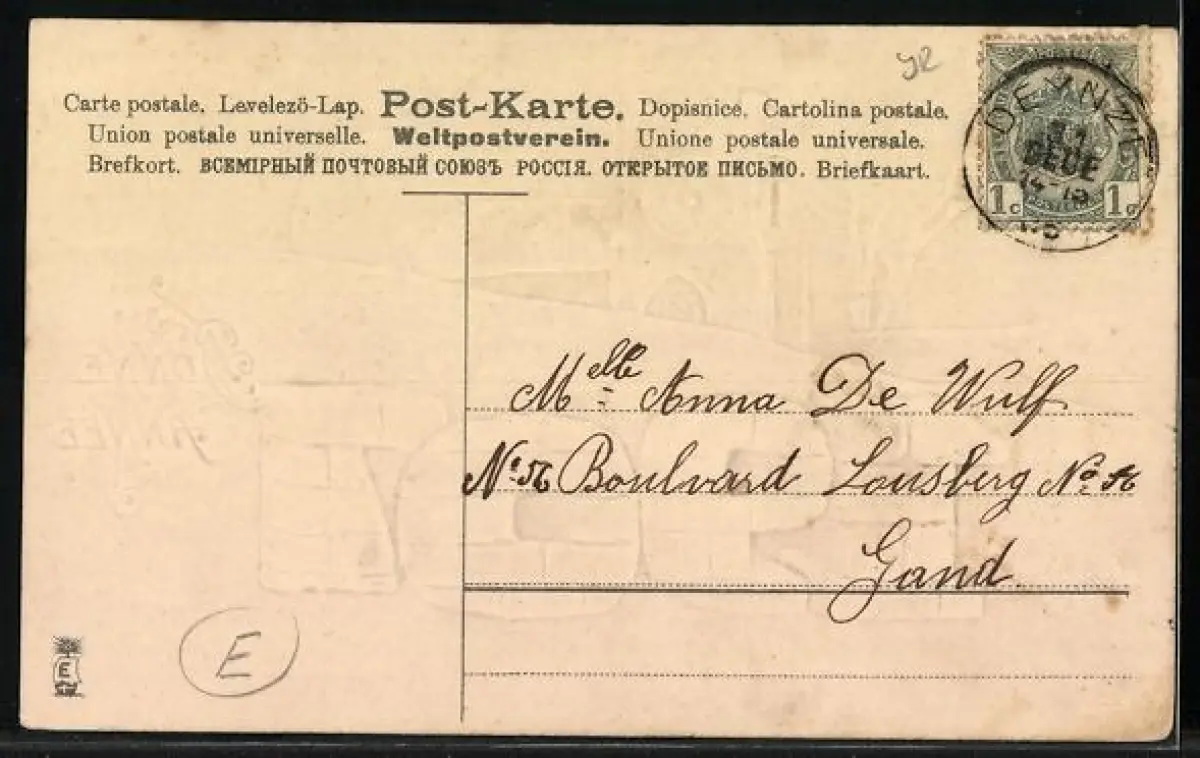 JR
Carte postale. Levelező-Lap. Post-Karte. Dopisnice. Cartolina postale.
Union postale universelle. Weltpostverein. Unione postale universale.
Brefkort. ВСЕМІРНЫЙ ПОЧТОВЫЙ СОЮЗЪ РОССІЯ. ОТКРЫТОЕ ПИСЬМО. Briefkaart.
DEYNZE
31
DECE
14-15
1 c 1 c
Melle Anna De Wulf
Boulvard Lousberg
Gand
BONNE
ANNÉE
E
E